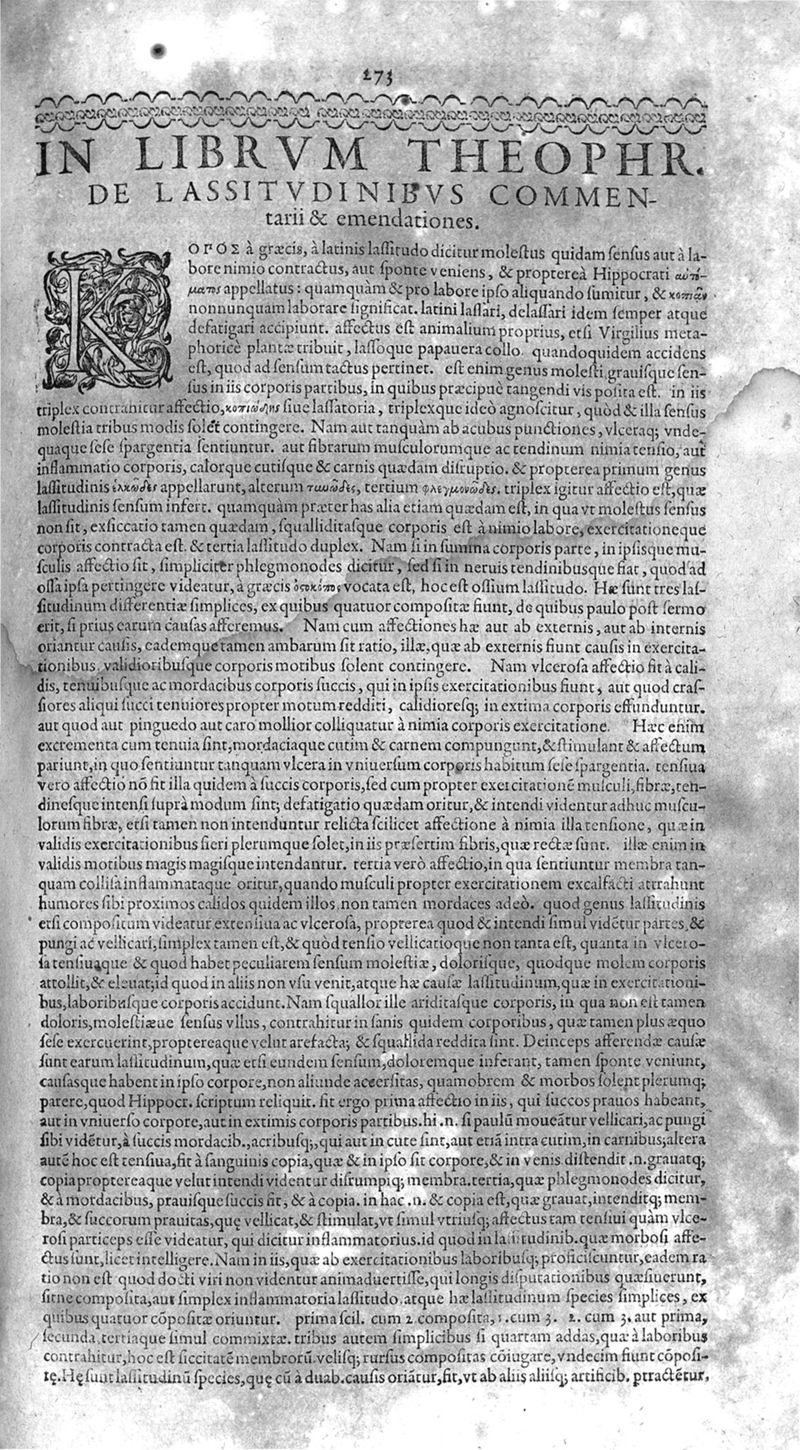 273
IN LIBRVM THEOPHR.
DE LASSITVDINIBVS COMMEN-
tarii & emendationes.
KΟΓΟΣ à græcis, à latinis laſſitudo dicitur moleſtus quidam ſenſus aut à la-
bore nimio contractus, aut ſponte veniens, & proptereà Hippocrati αυτό-
ματος appellatus: quamquàm & pro labore ipſo aliquando ſumitur, & κοπιᾶν
nonnunquam laborare ſignificat. latini laſſari, delaſſari idem ſemper atque
defatigari accipiunt. affectus eſt animalium proprius, etſi Virgilius meta-
phoricè plantæ tribuit, laſſoque papauera collo. quandoquidem accidens
eſt, quod ad ſenſum tactus pertinet. eſt enim genus moleſti, grauiſque ſen-
ſus in iis corporis partibus, in quibus præcipuè tangendi vis poſita eſt. in iis
triplex contrahitur affectio, κοπιώδης ſiue laſſatoria, triplexque ideò agnoſcitur, quòd & illa ſenſus
moleſtia tribus modis ſolet contingere. Nam aut tanquàm ab acubus punctiones, vlceraq; vnde-
quaque ſeſe ſpargentia ſentiuntur. aut fibrarum muſculorumque ac tendinum nimia tenſio, aut
inflammatio corporis, calorque cutiſque & carnis quædam diſruptio. & propterea primum genus
laſſitudinis ἑλκώδες appellarunt, alterum τανῶδες, tertium φλεγμονῶδες. triplex igitur affectio eſt, quæ
laſſitudinis ſenſum infert. quamquàm præter has alia etiam quædam eſt, in qua vt moleſtus ſenſus
non ſit, exſiccatio tamen quædam, ſqualliditaſque corporis eſt à nimio labore, exercitationeque
corporis contracta eſt. & tertia laſſitudo duplex. Nam ſi in ſumma corporis parte, in ipſisque mu-
ſculis affectio ſit, ſimpliciter phlegmonodes dicitur, ſed ſi in neruis tendinibusque fiat, quod ad
oſſa ipſa pertingere videatur, à græcis ὀςοκόπος vocata eſt, hoc eſt oſſium laſſitudo. Hæ ſunt tres laſ-
ſitudinum differentiæ ſimplices, ex quibus quatuor compoſitæ fiunt, de quibus paulo poſt ſermo
erit, ſi prius earum cauſas afferemus. Nam cum affectiones hæ aut ab externis, aut ab internis
oriantur cauſis, eademque tamen ambarum ſit ratio, illæ, quæ ab externis fiunt cauſis in exercita-
tionibus, validioribuſque corporis motibus ſolent contingere. Nam vlceroſa affectio fit à cali-
dis, tenuibuſque ac mordacibus corporis ſuccis, qui in ipſis exercitationibus fiunt, aut quod craſ-
ſiores aliqui ſucci tenuiores propter motum redditi, calidioreſq; in extima corporis effunduntur.
aut quod aut pinguedo aut caro mollior colliquatur à nimia corporis exercitatione. Hæc enim
excrementa cum tenuia ſint, mordaciaque cutim & carnem compungunt, & ſtimulant & affectum
pariunt, in quo ſentiuntur tanquam vlcera in vniuerſum corporis habitum ſeſe ſpargentia. tenſiua
vero affectio nõ fit illa quidem à ſuccis corporis, ſed cum propter exercitationē muſculi, fibræ, ten-
dineſque intenſi ſuprà modum ſint; defatigatio quædam oritur, & intendi videntur adhuc muſcu-
lorum fibræ, etſi tamen non intenduntur relicta ſcilicet affectione à nimia illa tenſione, quæ in
validis exercitationibus fieri plerumque ſolet, in iis præſertim fibris, quæ rectæ ſunt. illæ enim in
validis motibus magis magiſque intendantur. tertia verò affectio, in qua ſentiuntur membra tan-
quam colliſa inflammataque oritur, quando muſculi propter exercitationem excalfacti attrahunt
humores ſibi proximos calidos quidem illos non tamen mordaces adeò. quod genus laſſitudinis
etſi compoſitum videatur ex tenſiua ac vlceroſa, propterea quod & intendi ſimul vidētur partes, &
pungi ac vellicari, ſimplex tamen eſt, & quòd tenſio vellicatioque non tanta eſt, quanta in vlcero-
ſa tenſiuaque & quod habet peculiarem ſenſum moleſtiæ, doloriſque, quodque molem corporis
attollit, & eleuat; id quod in aliis non vſu venit, atque hæ cauſæ laſſitudinum, quæ in exercitationi-
bus, laboribuſque corporis accidunt. Nam ſquallor ille ariditaſque corporis, in qua non eſt tamen
doloris, moleſtiæue ſenſus vllus, contrahitur in ſanis quidem corporibus, quæ tamen plus æquo
ſeſe exercuerint, proptereaque velut arefacta; & ſquallida reddita ſint. Deinceps afferendæ cauſæ
ſunt earum laſſitudinum, quæ etſi eundem ſenſum, doloremque inferant, tamen ſponte veniunt,
cauſasque habent in ipſo corpore, non aliunde accerſitas, quamobrem & morbos ſolent plerumq;
parere, quod Hippocr. ſcriptum reliquit. fit ergo prima affectio in iis, qui ſuccos prauos habeant,
aut in vniuerſo corpore, aut in extimis corporis partibus. hi .n. ſi paulũ moueãtur vellicari, ac pungi
ſibi vidētur, à ſuccis mordacib., acribuſq;, qui aut in cute ſint, aut etiã intra cutim, in carnibus; altera
autē hoc eſt tenſiua, fit à ſanguinis copia, quæ & in ipſo ſit corpore, & in venis diſtendit .n. grauatq;
copia proptereaque velut intendi videntur diſrumpiq; membra. tertia, quæ phlegmonodes dicitur,
& à mordacibus, prauiſque ſuccis fit, & à copia. in hac .n. & copia eſt, quæ grauat, intenditq; mem-
bra, & ſuccorum prauitas, quę vellicat, & ſtimulat, vt ſimul vtriuſq; affectus tam tenſiui quàm vlce-
roſi particeps eſſe videatur, qui dicitur inflammatorius. id quod in laſſitudinib. quæ morboſi affe-
ctus ſunt, licet intelligere. Nam in iis, quæ ab exercitationibus laboribuſq; proficiſcuntur, eadem ra
tio non eſt quod docti viri non videntur animaduertiſſe, qui longis diſputationibus quæſiuerunt,
ſitne compoſita, aut ſimplex inflammatoria laſſitudo. atque hæ laſſitudinum ſpecies ſimplices, ex
quibus quatuor cõpoſitæ oriuntur. prima ſcil. cum 2 compoſita, 1. cum 3. 2. cum 3. aut prima,
ſecunda, tertiaque ſimul commixtæ. tribus autem ſimplicibus ſi quartam addas, quæ à laboribus
contrahitur, hoc eſt ſiccitatē membrorũ. veliſq; rurſus compoſitas cõiugare, vndecim fiunt cõpoſi-
tę. Hę ſunt laſſitudinũ ſpecies, quę cũ à duab. cauſis oriãtur, fit, vt ab aliis aliiſq; artificib. ptractētur,